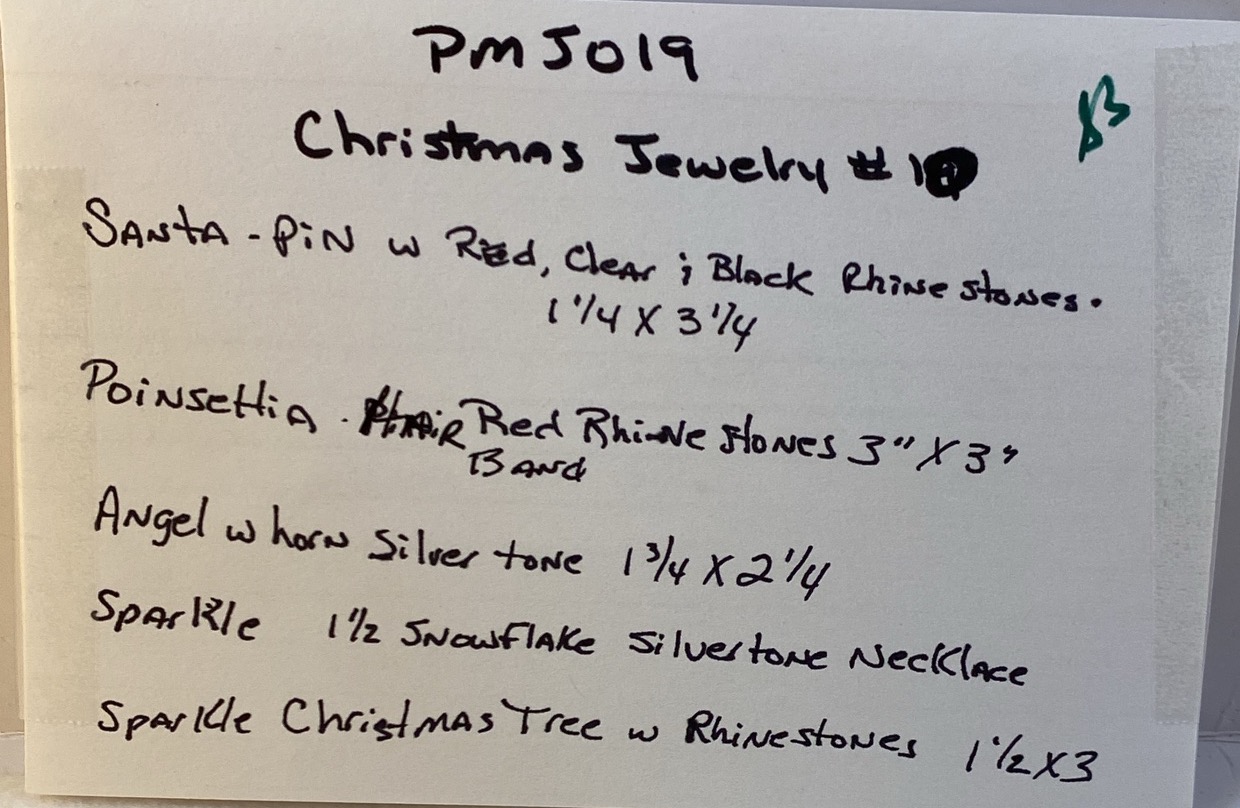 PMJ019
$3
Christmas Jewelry # 1
Santa - Pin w Red, Clear & Black Rhinestones.
1 1/4 X 3 1/4
Poinsettia - Hair Red Rhinestones 3" X 3"
Band
Angel w horn Silver tone 1 3/4 X 2 1/4
Sparkle 1 1/2 Snowflake Silvertone Necklace
Sparkle Christmas Tree w Rhinestones 1 1/2 X 3